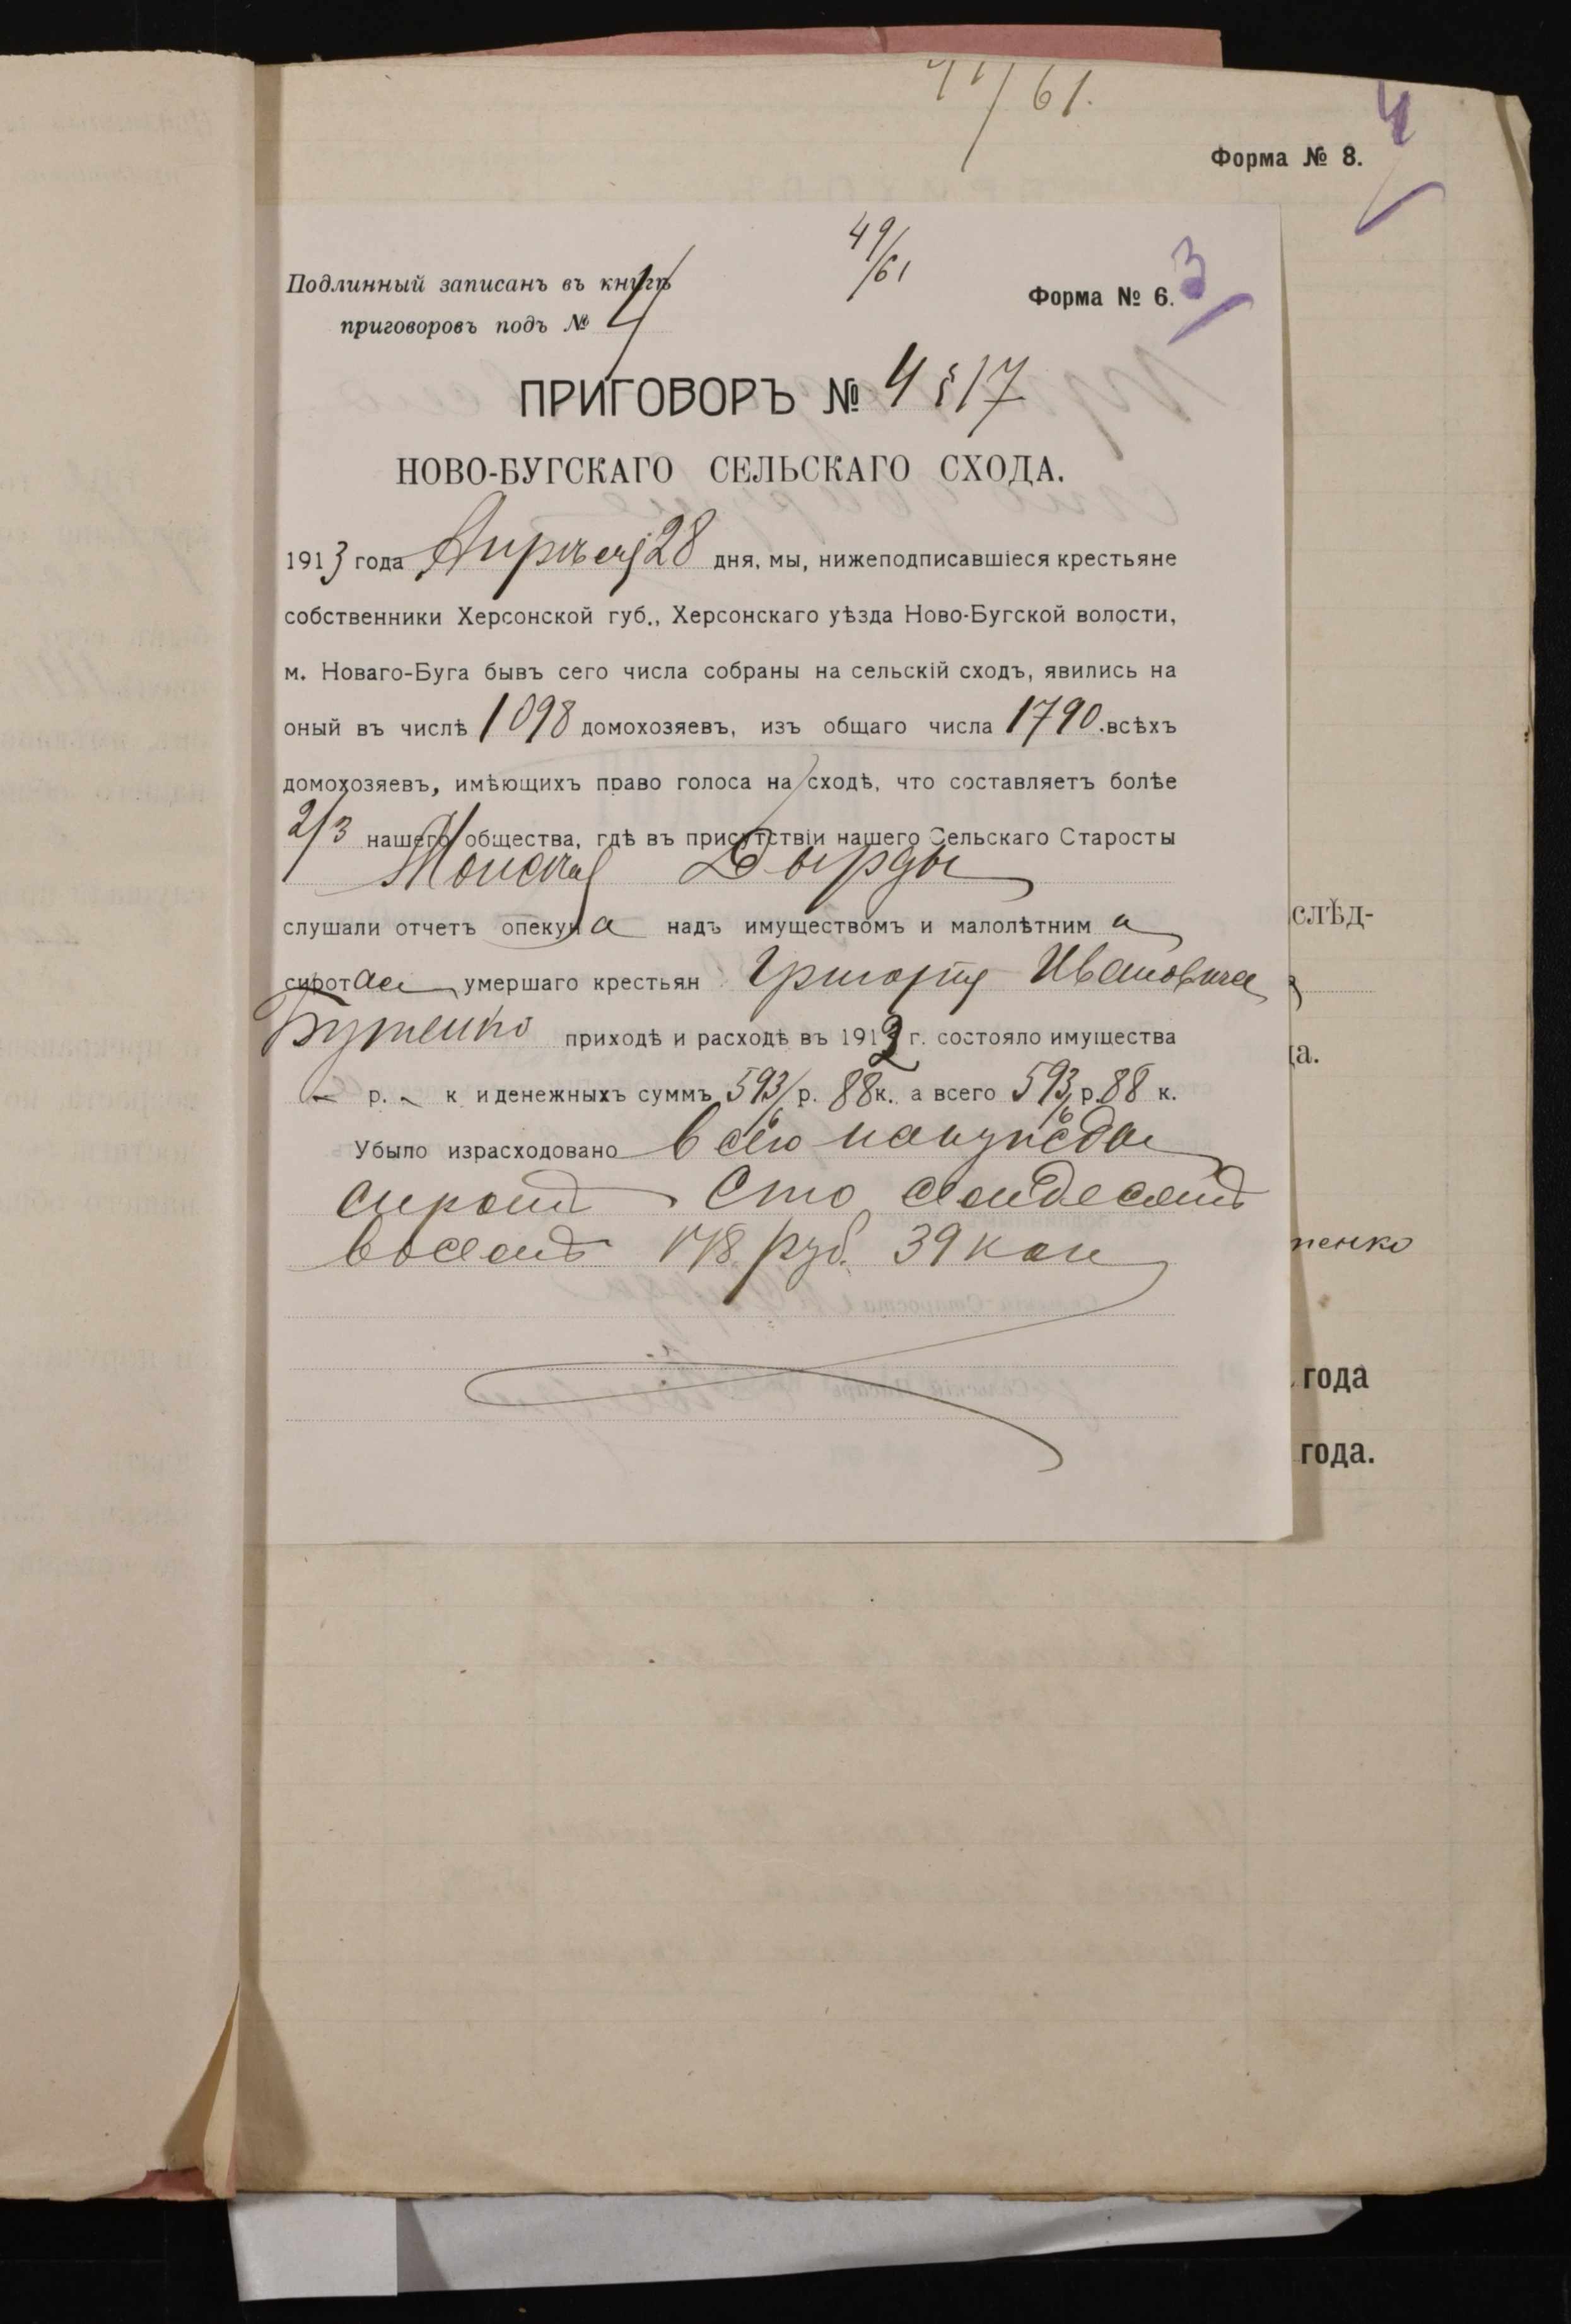 61.
4
Форма № 8.
49/61
Подлинный записанъ въ книгѣ
Форма № 6.
3
приговоровъ подъ № 4
ПРИГОВОРЪ № 4 17
НОВО-БУГСКАГО СЕЛЬСКАГО СХОДА.
1913 года Апрѣля 28 дня, мы, нижеподписавшіеся крестьяне
собственники Херсонской губ., Херсонскаго уѣзда Ново-Бугской волости,
м. Новаго-Буга бывъ сего числа собраны на сельскій сходъ, явились на
оный въ числѣ 1098 домохозяевъ, изъ общаго числа 1790 всѣхъ
домохозяевъ, имѣющихъ право голоса на сходѣ, что составляетъ болѣе
2/3 нашего общества, гдѣ въ присутствіи нашего Сельскаго Старосты
Моисея Дырды
слушали отчетъ опекуна надъ имуществомъ и малолѣтним а
слѣд-
сиротаи умершаго крестьян Григорія Ивановича
Бутенко приходѣ и расходѣ въ 1912 г. состояло имущества
да.
— р. — к и денежныхъ суммъ 593 р. 88 к. а всего 593 р. 88 к.
Убыло израсходовано всего на нужды
сиротъ Сто семдесятъ
восемъ 178 руб. 39 коп
пенко
года
года.